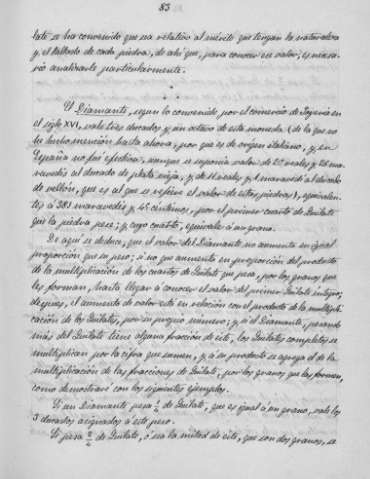 83
late se ha convenido que sea relativo al mérito que tengan la naturaleza
y el tallado de cada piedra; de ahí que, para conocer su valor, es necesa-
rio analizarle particularmente.
El Diamante, segun lo convenido por el comercio de Joyería en
el siglo XVI, vale tres ducados y un octavo de esta moneda (de la que no
he hecho mención hasta ahora, por que es de origen italiano, y en
España no fue efectiva, aunque se suponía valor de 20 reales y 26 mara-
vedís al ducado de plata vieja, y de 11 reales y 1 maravedí al ducado
de vellón, que es al que se refiere el valor de estas piedras), equivalen-
tes á 383 maravedís y 45 céntimos, por el primer cuarto de Quilate
que la piedra pese; y cuyo cuarto, equivale á un grano.
De aquí se deduce, que el valor del Diamante no aumenta en igual
proporción que su peso; sino que aumenta en proporción del producto
de la multiplicación de los cuartos de Quilate que pesa, por los granos que
les forman, hasta llegar á conocer el valor del primer Quilate íntegro;
despues, el aumento de valor está en relación con el producto de la multipli-
cación de los Quilates, por su propio número; y si el Diamante, pesando
más del Quilate tiene alguna fracción de éste, los Quilates completos se
multiplican por la cifra que sumen, y á su producto se agrega el de la
multiplicación de las fracciones de Quilate, por los granos que las forman,
como demostraré con los siguientes ejemplos.
Si un Diamante pesa ¼ de Quilate, que es igual á un grano, vale los
3 ducados asignados á este peso.
Si pesa 2/4 de Quilate, ó sea la mitad de éste, que son dos granos, se